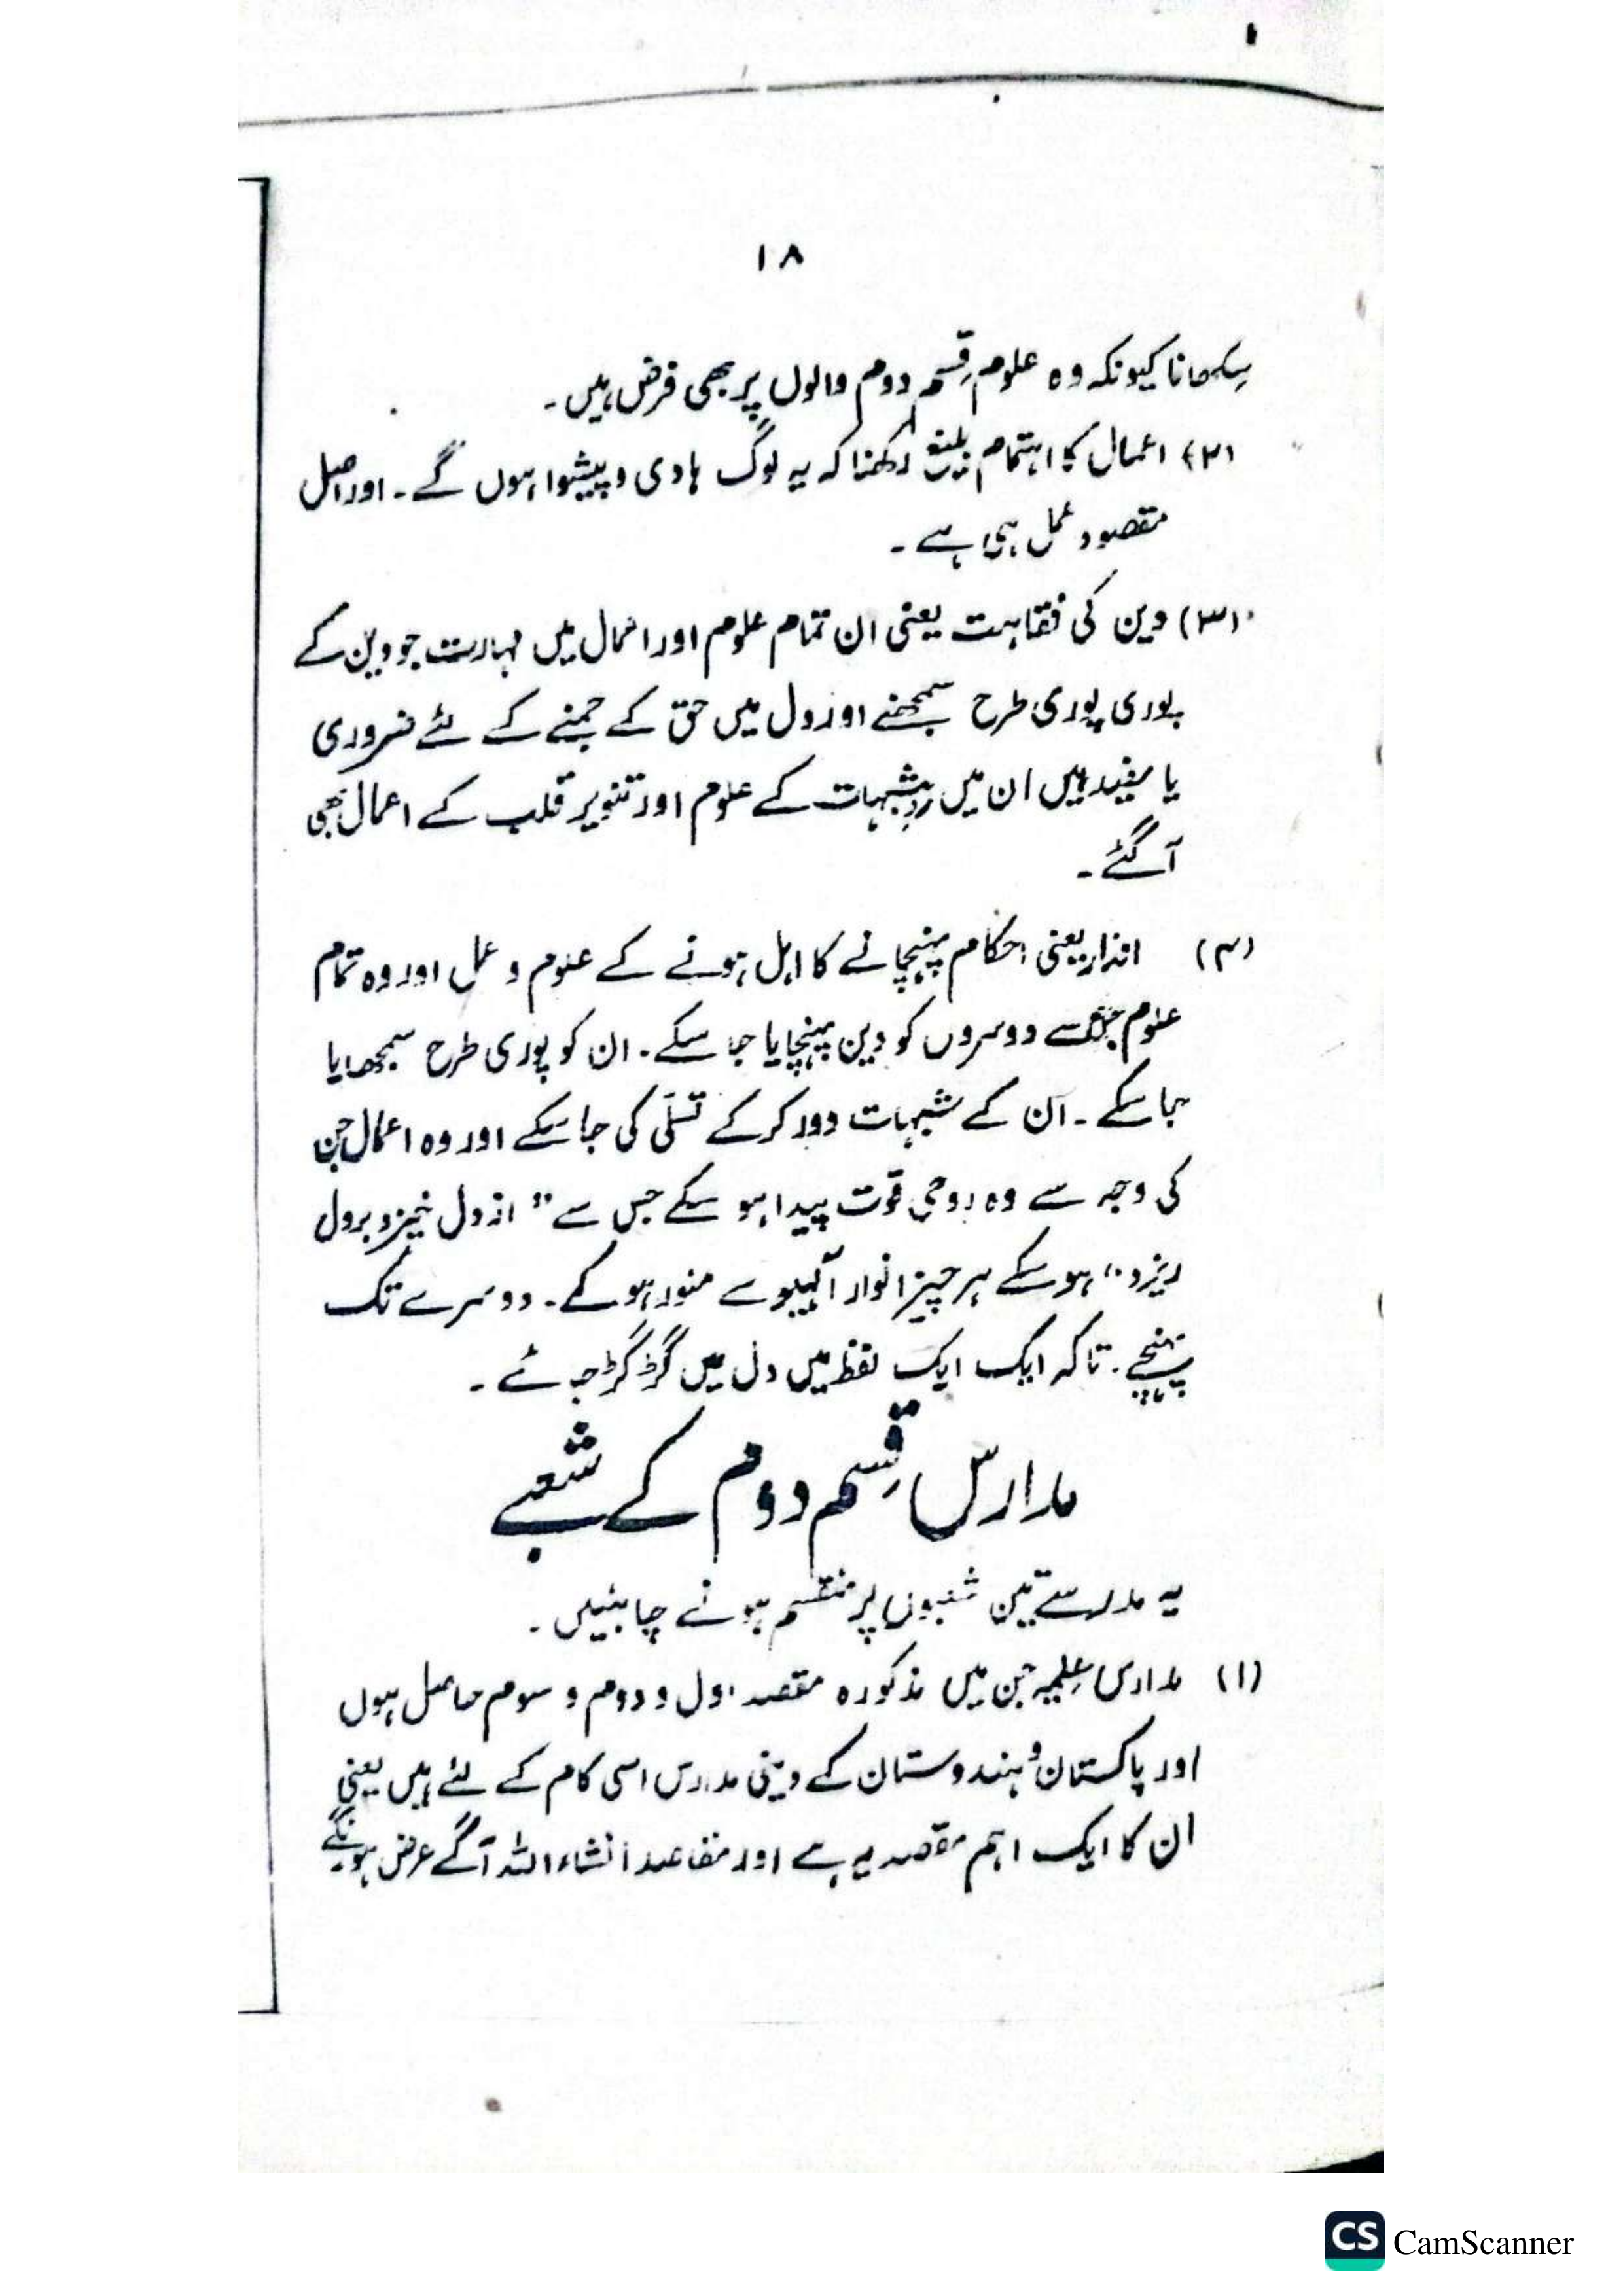 ۱۸
سکھانا کیونکہ وہ علوم قسم دوم والوں پر بھی فرض ہیں۔
(۲) اعمال کا اہتمام بلیغ رکھنا کہ یہ لوگ ہادی و پیشوا ہوں گے۔ اور اصل
مقصود عمل ہی ہے۔
(۳) دین کی فقاہت یعنی ان تمام علوم اور اعمال میں مہارت جو دین کے
پوری پوری طرح سمجھنے اور دل میں حق کے جمنے کے لئے ضروری
یا مفید ہیں ان میں ردِ شبہات کے علوم اور تنویر قلب کے اعمال بھی
آگئے۔
(۴) انذار یعنی احکام پہنچانے کا اہل ہونے کے علوم و عمل اور وہ تمام
علوم جن سے دوسروں کو دین پہنچایا جا سکے۔ ان کو پوری طرح سمجھایا
جا سکے۔ ان کے شبہات دور کر کے تسلّی کی جا سکے اور وہ اعمال جن
کی وجہ سے وہ روحی قوت پیدا ہو سکے جس سے ”از دل خیزد بر دل
ریزد“ ہو سکے ہر چیز انوار سے منور ہو کے۔ دوسرے تک
پہنچے۔ تاکہ ایک ایک لفظ میں دل میں گڑ گڑ جائے۔
مدارس قِسم دوم کے شعبے
یہ مدرسے تین شعبوں پر منقسم ہونے چاہئیں۔
(۱) مدارس عِلمیہ جن میں مذکورہ مقصد اول و دوم و سوم حاصل ہوں
اور پاکستان و ہندوستان کے دینی مدارس اسی کام کے لئے ہیں یعنی
ان کا ایک اہم مقصد یہ ہے اور مقاصد انشاء اللہ آگے عرض ہونگے
CS CamScanner